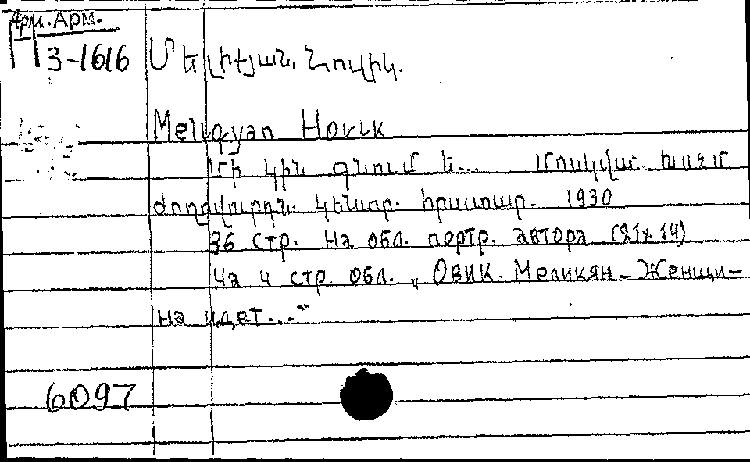 Арм. Арм.
П3-1616
Մելիքյան, Հովիկ.
Meliqyan Hovik
Մի կին գնում է... Մոսկվա. ԽՍՀՄ
ժողովուրդն. կենտր. հրատար. 1930
36 стр. На обл. портр. автора (21х14)
На 4 стр. обл. „Овик Меликян - Женщи-
на идет..."
6097